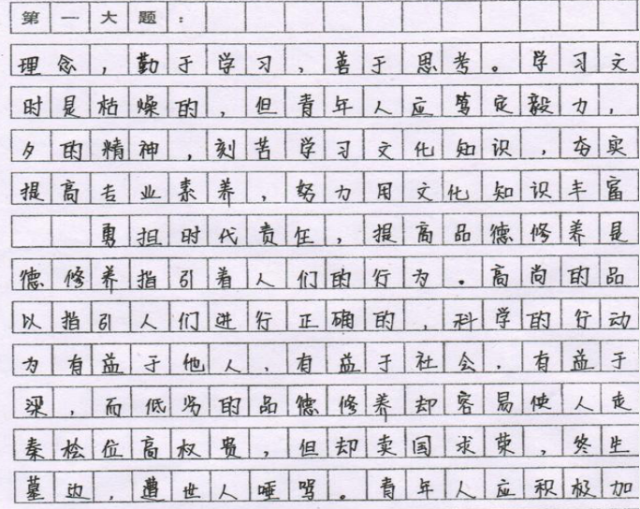 第一大题：
理念，勤于学习，善于思考。学习文
时是枯燥的，但青年人应笃定毅力，
夕的精神，刻苦学习文化知识，夯实
提高专业素养，努力用文化知识丰富
勇担时代责任，提高品德修养是
德修养指引着人们的行为。高尚的品
以指引人们进行正确的，科学的行动
为有益于他人，有益于社会，有益于
深，而低劣的品德修养却容易使人走
秦桧位高权贵，但却卖国求荣，终生
墓边，遭世人唾骂。青年人应积极加